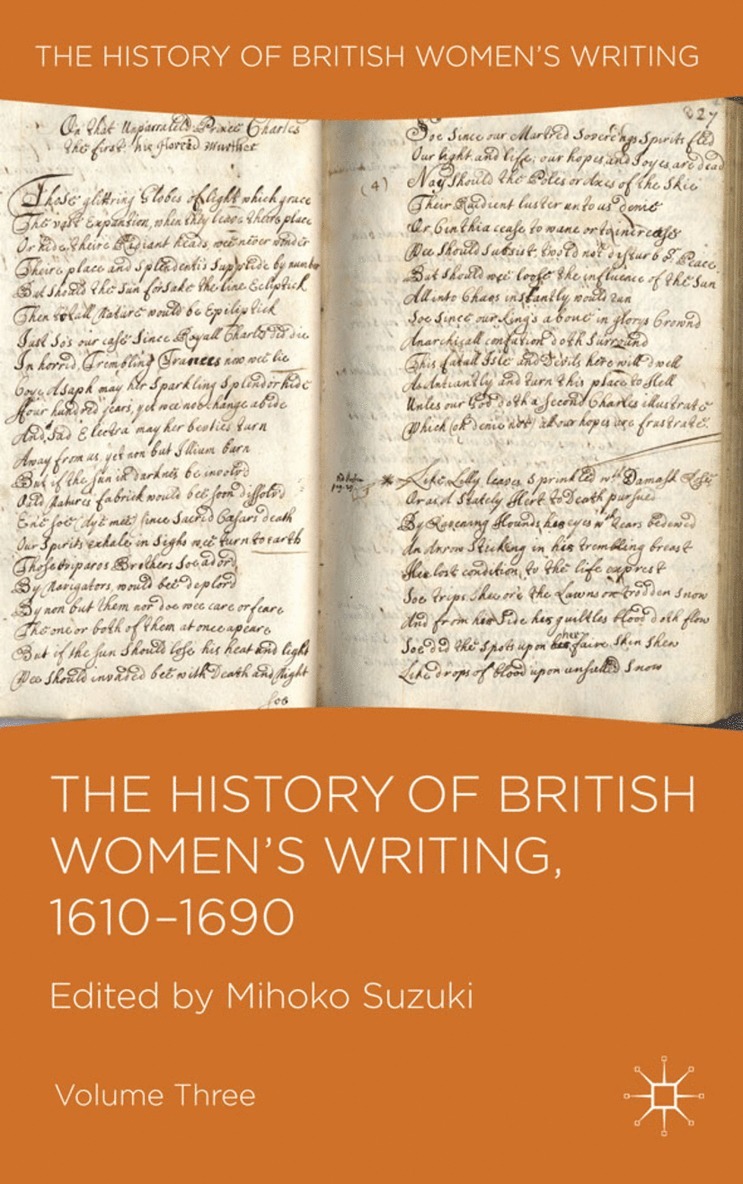 THE HISTORY OF BRITISH WOMEN'S WRITING
On that Unparralel'd Prince Charles
the first his Horrid Murther
Those glittring Globes of light which grace
The vast Expansion, when they leave theire place
Or hide theire Radiant heads, wee never wonder
Theire place and Splendentis Supplide by number
But should the Sun forsake the line Ecliptick
Then all Nature would be Epileptick
Just so's our case Since Royall Charles did die
In horrid, Trembling Trances now wee lie
Asaph may her Sparkling Splendor hide
ffour hundred years, yet wee noe change abide
And Sad Electra may her beuties turn
Away from us, yet non but Illium burn
But if the Sun in darknes be involv'd
Old Natures fabrick would bee soon dissolv'd
Ene soe (Aye mee) Since Sacred Cesars death
Our Spirits exhale in Sighs wee turn to earth
Those Brothers Soe ador'd
By Navigators, would bee deplor'd
By non but them nor doe wee care or feare
The one or both of them at once apeare
But if the Sun should lose his heat and light
Wee should invaded bee with Death and Night
Soe
227
Soe Since our Martred Soveregns Spirits fled
Our light and life, our hopes and Joyes are dead
(4)
Nay should the Poles or Axes of the Skie
Their Radient luster unto us denie
Or Cinthia cease to wane or to increase
Wee should Subsist twould not disturb or Peace
But should wee loose the influence of the Sun
All into Chaos instantly would run
Soe Since our King's above in glorys Crownd
Anarchicall confusion doth Surround
This fatall Isle and Devils here will dwell
As Antiantly and turn this place to Hell
Unles our God doth a Second Charles illustrate
Which (oh denie not) all our hopes are frustrate
Like Lilly leaves Sprinkled wth Damask Rose
Or as a Stately Hert to Death pursued
By Roreing Hounds her eyes wth tears bedewed
An Arrow Sticking in her trembling breast
Her lost condition to the life exprest
Soe trips Shee ore the Lawns on trodden Snow
And from her Side her guiltles blood doth flow
Soe did the Spots upon her faire Skin Shew
Like drops of blood upon unsullied Snow
THE HISTORY OF BRITISH
WOMEN'S WRITING,
1610–1690
Edited by Mihoko Suzuki
Volume Three